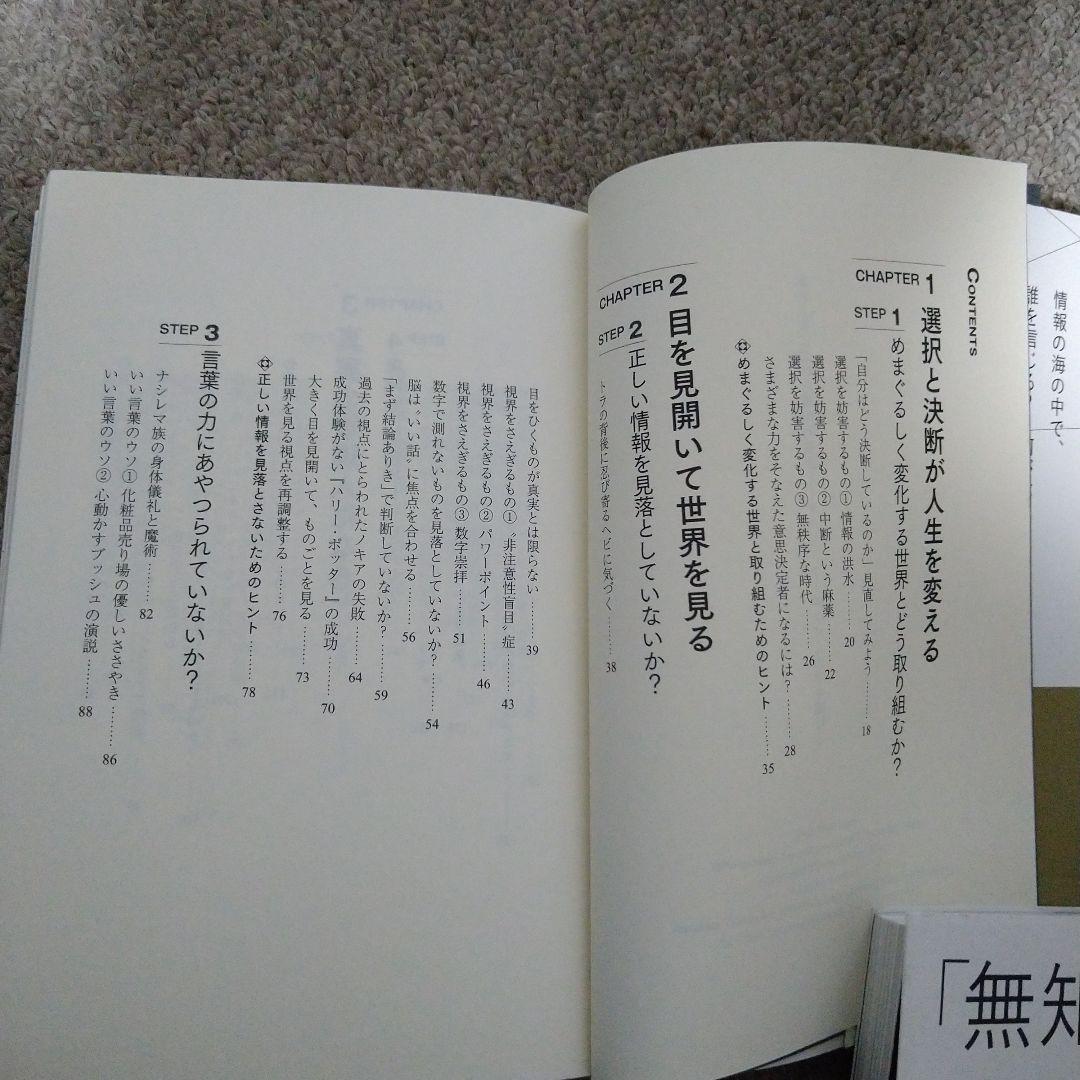 CONTENTS
CHAPTER 1 選択と決断が人生を変える
STEP 1 めまぐるしく変化する世界とどう取り組むか？
「自分はどう決断しているのか」見直してみよう……… 18
選択を妨害するもの① 情報の洪水……… 20
選択を妨害するもの② 中断という麻薬……… 22
選択を妨害するもの③ 無秩序な時代……… 26
さまざまな力をそなえた意思決定者になるには？……… 28
めまぐるしく変化する世界と取り組むためのヒント……… 35
CHAPTER 2 目を見開いて世界を見る
STEP 2 正しい情報を見落としていないか？
トラの背後に忍び寄るヘビに気づく……… 38
目をひくものが真実とは限らない……… 39
視界をさえぎるもの① 〝非注意性盲目〟症……… 43
視界をさえぎるもの② パワーポイント……… 46
視界をさえぎるもの③ 数字崇拝……… 51
数字で測れないものを見落としていないか？……… 54
脳は〝いい話〟に焦点を合わせる……… 56
「まず結論ありき」で判断していないか？……… 59
過去の視点にとらわれたノキアの失敗……… 64
成功体験がない『ハリー・ポッター』の成功……… 70
大きく目を見開いて、ものごとを見る……… 73
世界を見る視点を再調整する……… 76
正しい情報を見落とさないためのヒント……… 78
STEP 3 言葉の力にあやつられていないか？
ナシレマ族の身体儀礼と魔術……… 82
いい言葉のウソ① 化粧品売り場の優しいささやき……… 86
いい言葉のウソ② 心動かすブッシュの演説……… 88
情報の海の中で、
誰を信じる？
「無知